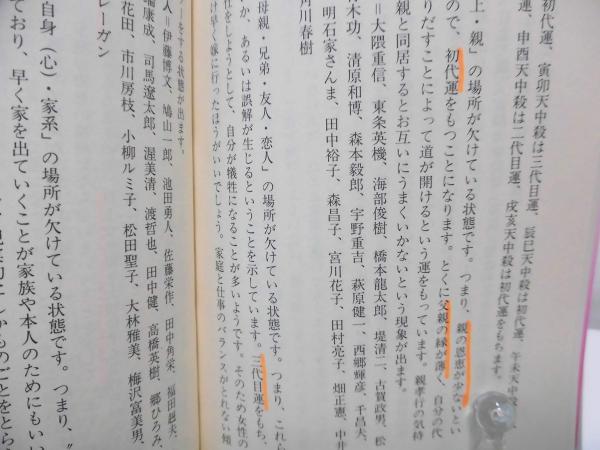 初代運、寅卯天中殺は三代目運、辰巳天中殺は初代運、午未天中殺
運、申酉天中殺は二代目運、戌亥天中殺は初代運をもちます。
上・親」の場所が欠けている状態です。つまり、親の恩恵が少ないとい
ので、初代運をもつことになります。とくに父親の縁が薄く、自分の代
りだすことによって道が開けるという運をもっています。親孝行の気持
親と同居するとお互いにうまくいかないという現象が出ます。
＝大隈重信、東条英機、海部俊樹、橋本龍太郎、堤清二、古賀政男、松
木功、清原和博、森本毅郎、宇野重吉、萩原健一、西郷輝彦、千昌夫、
明石家さんま、田中裕子、森昌子、宮川花子、田村亮子、畑正憲、中井
角川春樹
母親・兄弟・友人・恋人」の場所が欠けている状態です。つまり、これら
か、あるいは誤解が生じるということを示しています。二代目運をもち、
性をしようとして、自分が犠牲になることが多いようです。そのため女性の
け早く嫁に行ったほうがいいでしょう。家庭と仕事のバランスがとれない傾
をする状態が出ます。
人＝伊藤博文、鳩山一郎、池田勇人、佐藤栄作、田中角栄、福田赳夫、
康成、司馬遼太郎、渥美清、渡哲也、田中健、高橋英樹、郷ひろみ、
花田、市川房枝、小柳ルミ子、松田聖子、大林雅美、梅沢富美男、
レーガン
自身（心）・家系」の場所が欠けている状態です。つまり、
ており、早く家を出ていくことが家族や本人のためにもいい